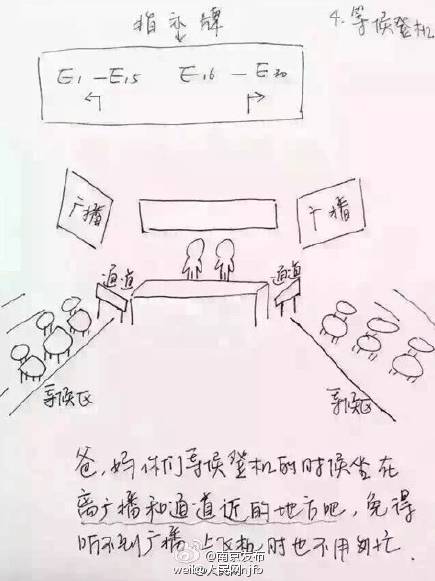 指示牌
4. 等候登机
E1-E15 E16-E30
广播
广播
通道
通道
等候区
等候区
爸,妈你们等候登机的时候坐在
离广播和通道近的地方吧,免得
听不到广播,上飞机时也不用匆忙.
@南京发布
weili@人民网njfb